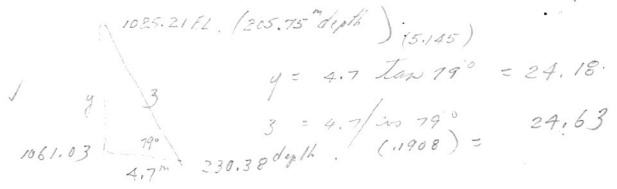 1085.21 FL. (205.75 m depth) (5.145)
y = 4.7 tan 79° = 24.18
y 3
3 = 4.7/cos 79° (.1908) = 24.63
1061.03 79° 4.7 m 230.38 depth.